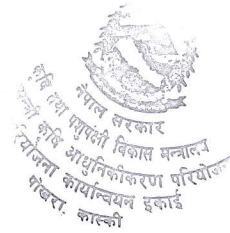 नेपाल सरकार
कृषि तथा पशुपंक्षी विकास मन्त्रालय
कृषि आधुनिकीकरण परियोजना
कार्यान्वयन इकाई
पोखरा, कास्की